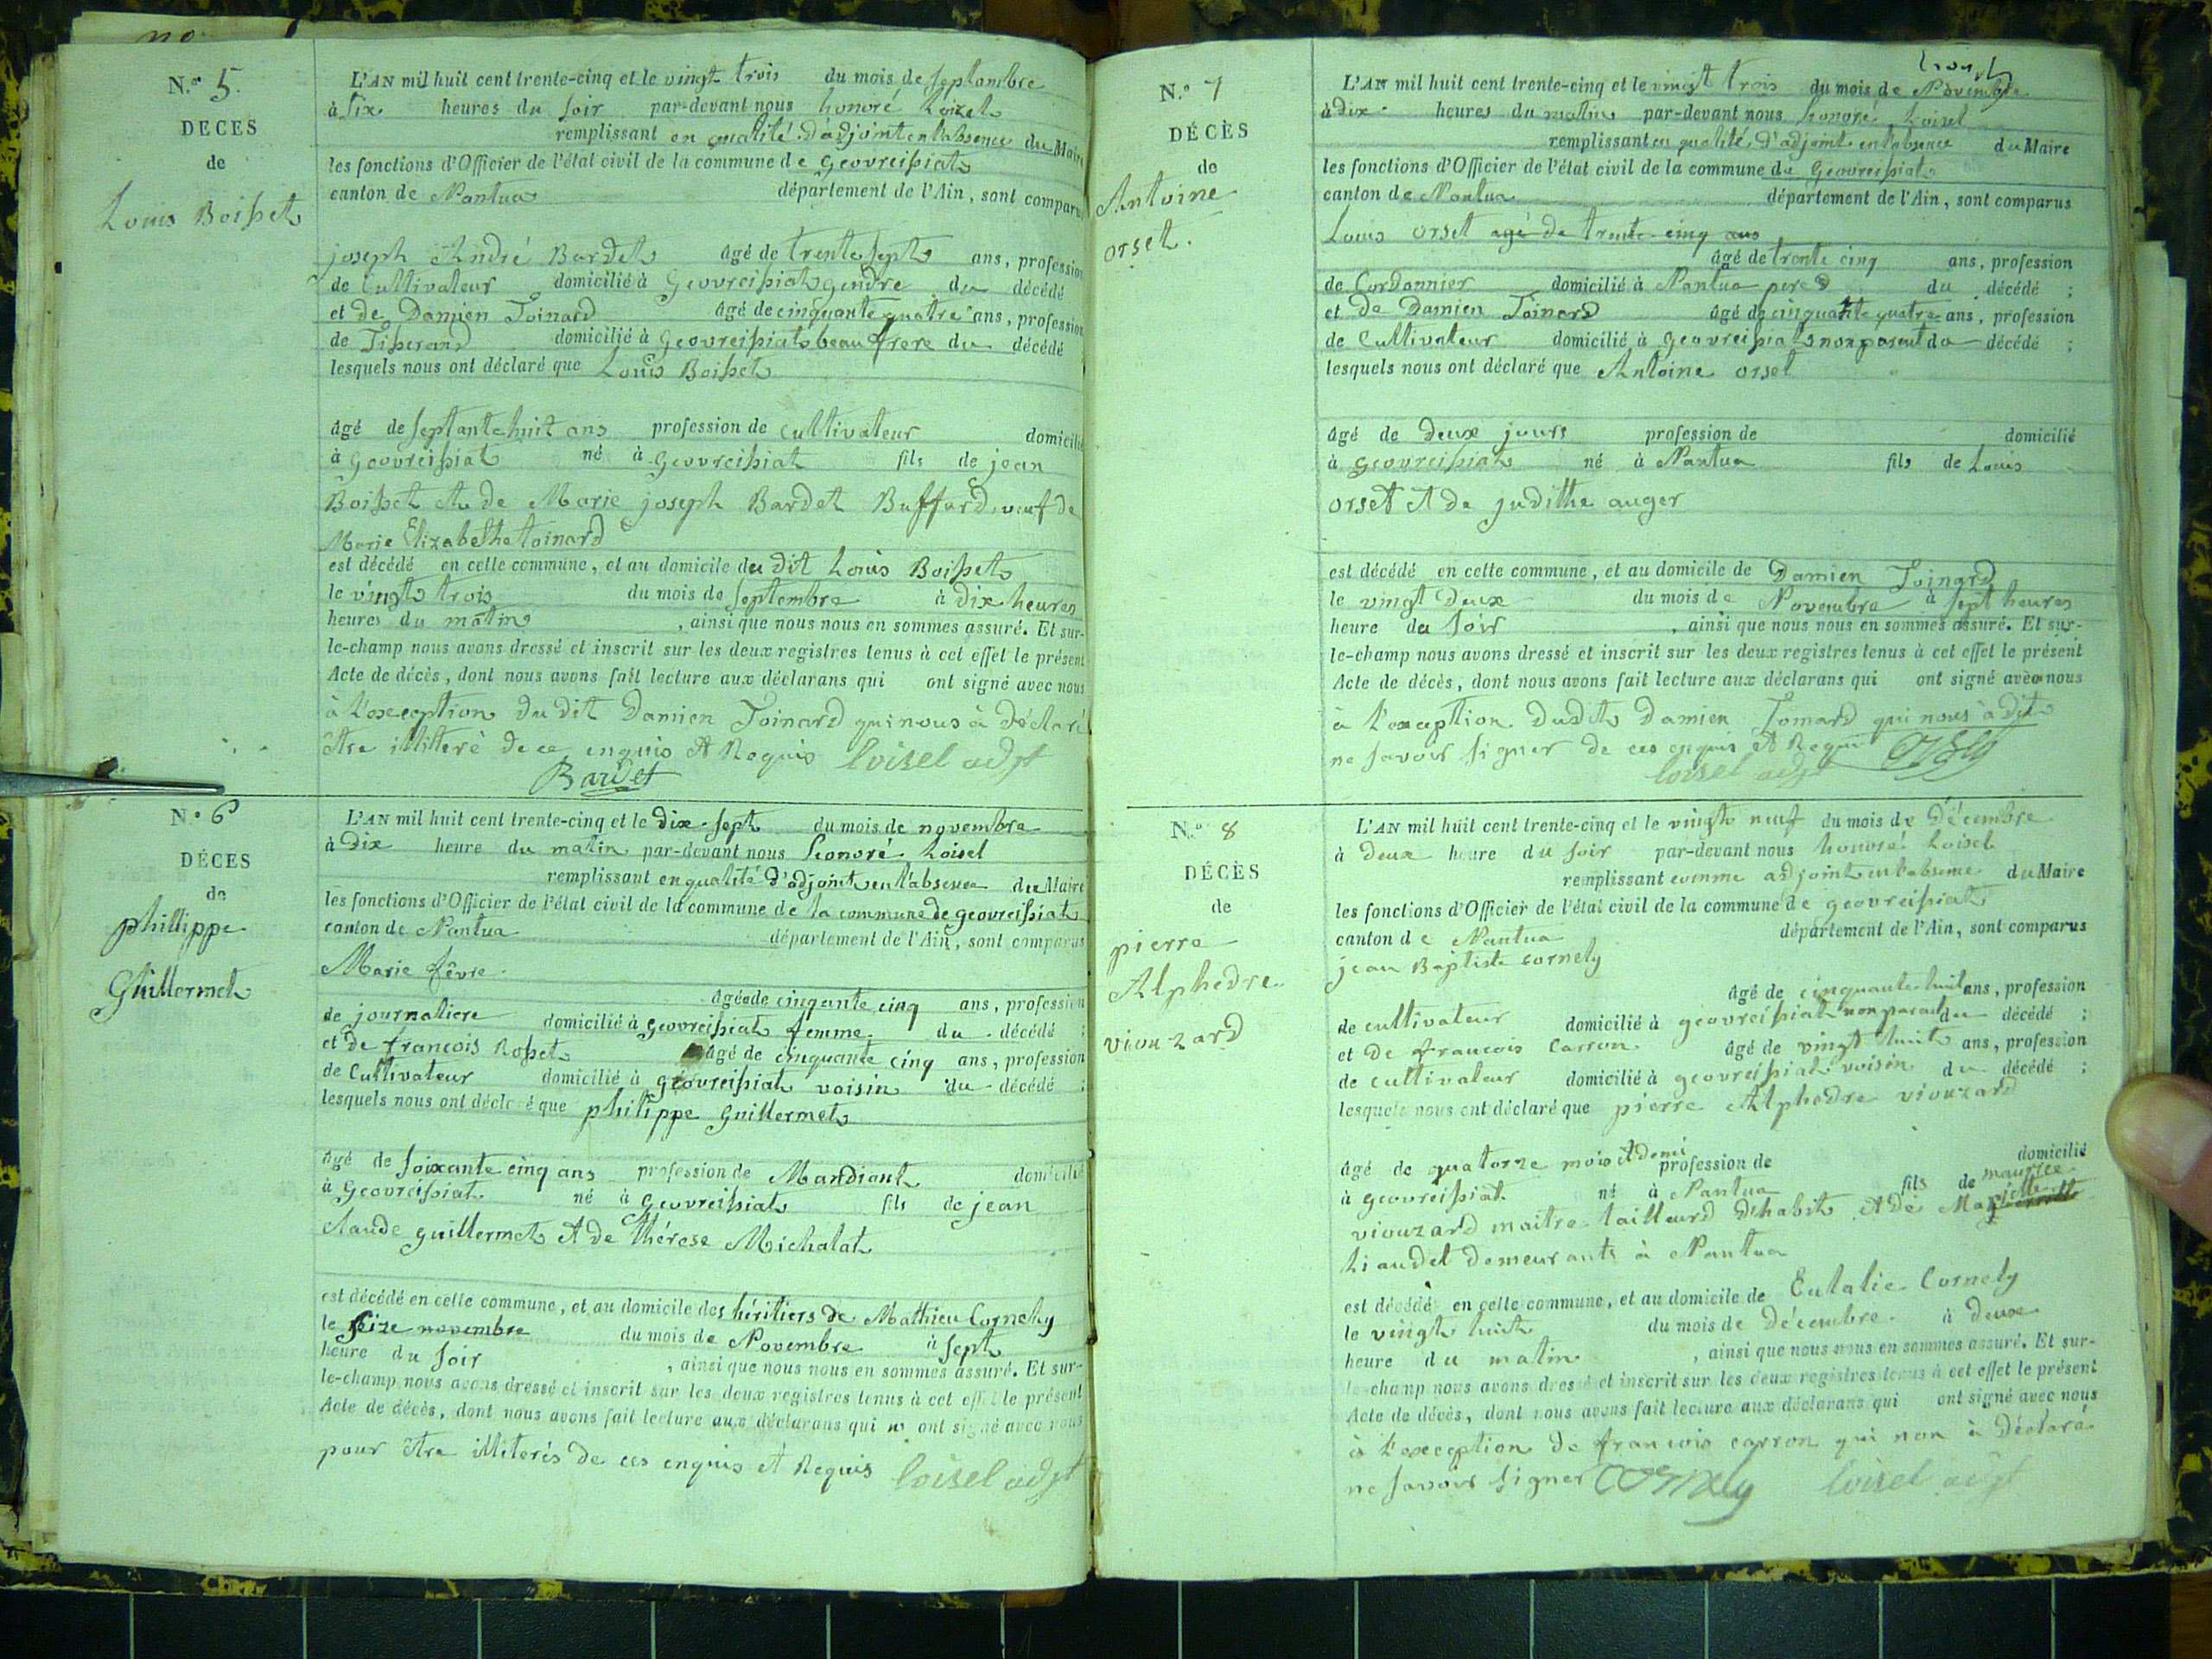 N.º 5.
DECES
de
Louis Boisset
L'AN mil huit cent trente-cinq et le vingt trois du mois de septembre
à six heures du soir par-devant nous honoré Loisel
remplissant en qualité d'adjoint en l'absence du Maire
les fonctions d'Officier de l'état civil de la commune de Geovreissiat
canton de Nantua département de l'Ain, sont comparus
joseph André Bardet âgé de trente sept ans, profession
de Cultivateur domicilié à Geovreissiat gendre du décédé
et de Damien Toinard âgé de cinquante quatre ans, profession
de Tisserand domicilié à Geovreissiat beau frere du décédé
lesquels nous ont déclaré que Louis Boisset
âgé de septante huit ans profession de cultivateur domicilié
à Geovreissiat né à Geovreissiat fils de jean
Boisset et de Marie joseph Bardet Buffard, veuf de
Marie Elizabethe toinard
est décédé en cette commune, et au domicile du dit Louis Boisset
le vingt trois du mois de septembre à dix heures
heures du matin, ainsi que nous nous en sommes assuré. Et sur-
le-champ nous avons dressé et inscrit sur les deux registres tenus à cet effet le présent
Acte de décès, dont nous avons fait lecture aux déclarans qui ont signé avec nous
à l'exception du dit Damien Toinard qui nous à déclaré
être illiteré de ce enquis et Requis loisel adjt
Bardet
N.º 6
DÉCES
de
phillippe
Guillermet
L'AN mil huit cent trente-cinq et le dix-sept du mois de novembre
à dix heure du matin par-devant nous honoré Loisel
remplissant en qualité d'adjoint en l'absence du Maire
les fonctions d'Officier de l'état civil de la commune de la commune de geovreissiat
canton de Nantua département de l'Ain, sont comparus
Marie fêvre
âgée de cinqante cinq ans, profession
de journaliere domicilié à geovreissiat femme du décédé ;
et de francois Rosset âgé de cinquante cinq ans, profession
de Cultivateur domicilié à geovreissiat voisin du décédé ;
lesquels nous ont déclaré que philippe Guillermet
âgé de soixante cinq ans profession de Mandiant domicilié
à Geovreissiat né à Geovreissiat fils de jean
claude guillermet et de thérese Michalat
est décédé en cette commune, et au domicile des héritiers de Mathieu Cornely
le seize novembre du mois de Novembre à sept
heure du soir, ainsi que nous nous en sommes assuré. Et sur-
le-champ nous avons dressé et inscrit sur les deux registres tenus à cet effet le présent
Acte de décès, dont nous avons fait lecture aux déclarans qui n' ont signé avec nous
pour être illiterés de ces enquis et Requis loisel adjt
N.º 7
DÉCÈS
de
Antoine
orset.
L'AN mil huit cent trente-cinq et le vingt trois du mois de Novembre
à dix heures du matin par-devant nous honoré Loisel
remplissant en qualité d'adjoint en l'absence du Maire
les fonctions d'Officier de l'état civil de la commune de Geovreissiat
canton de Nantua département de l'Ain, sont comparus
Louis orset agé de trente-cinq ans
âgé de trente cinq ans, profession
de Cordonnier domicilié à Nantua pere du décédé ;
et de Damien Toinard âgé de cinquante quatre ans, profession
de Cultivateur domicilié à geovreissiat non parent du décédé ;
lesquels nous ont déclaré que Antoine orset
âgé de deux jours profession de domicilié
à geovreissiat né à Nantua fils de Louis
orset et de judithe auger
est décédé en cette commune, et au domicile de Damien Toinard
le vingt deux du mois de Novembre à sept heures
heure du soir, ainsi que nous nous en sommes assuré. Et sur-
le-champ nous avons dressé et inscrit sur les deux registres tenus à cet effet le présent
Acte de décès, dont nous avons fait lecture aux déclarans qui ont signé avec nous
à l'exception dudit Damien Toinard qui nous à dit
ne savoir signer de ces enquis et Requis orset
loisel adjt
N.º 8
DÉCÈS
de
pierre
Alphedre
viouzard
L'AN mil huit cent trente-cinq et le vingt neuf du mois de Décembre
à deux heure du soir par-devant nous honoré Loisel
remplissant comme adjoint en l'absence du Maire
les fonctions d'Officier de l'état civil de la commune de geovreissiat
canton de Nantua département de l'Ain, sont comparus
jean Baptiste cornely
âgé de cinquante-huit ans, profession
de cultivateur domicilié à geovreissiat non parent du décédé ;
et de francois Carron âgé de vingt huit ans, profession
de cultivateur domicilié à geovreissiat voisin du décédé ;
lesquels nous ont déclaré que pierre Alphedre viouzard
âgé de quatorze mois et demi profession de domicilié
à geovreissiat né à Nantua fils de maurice
viouzard maitre tailleurd d'habit et de
Liaudet demeurants à Nantua
est décédé en cette commune, et au domicile de Eulalie Cornely
le vingt huit du mois de Décembre à deux
heure du matin, ainsi que nous nous en sommes assuré. Et sur-
le-champ nous avons dressé et inscrit sur les deux registres tenus à cet effet le présent
Acte de décès, dont nous avons fait lecture aux déclarans qui ont signé avec nous
à l'exception de francois carron qui non à Déclaré
ne savoir signer cornely loisel adjt